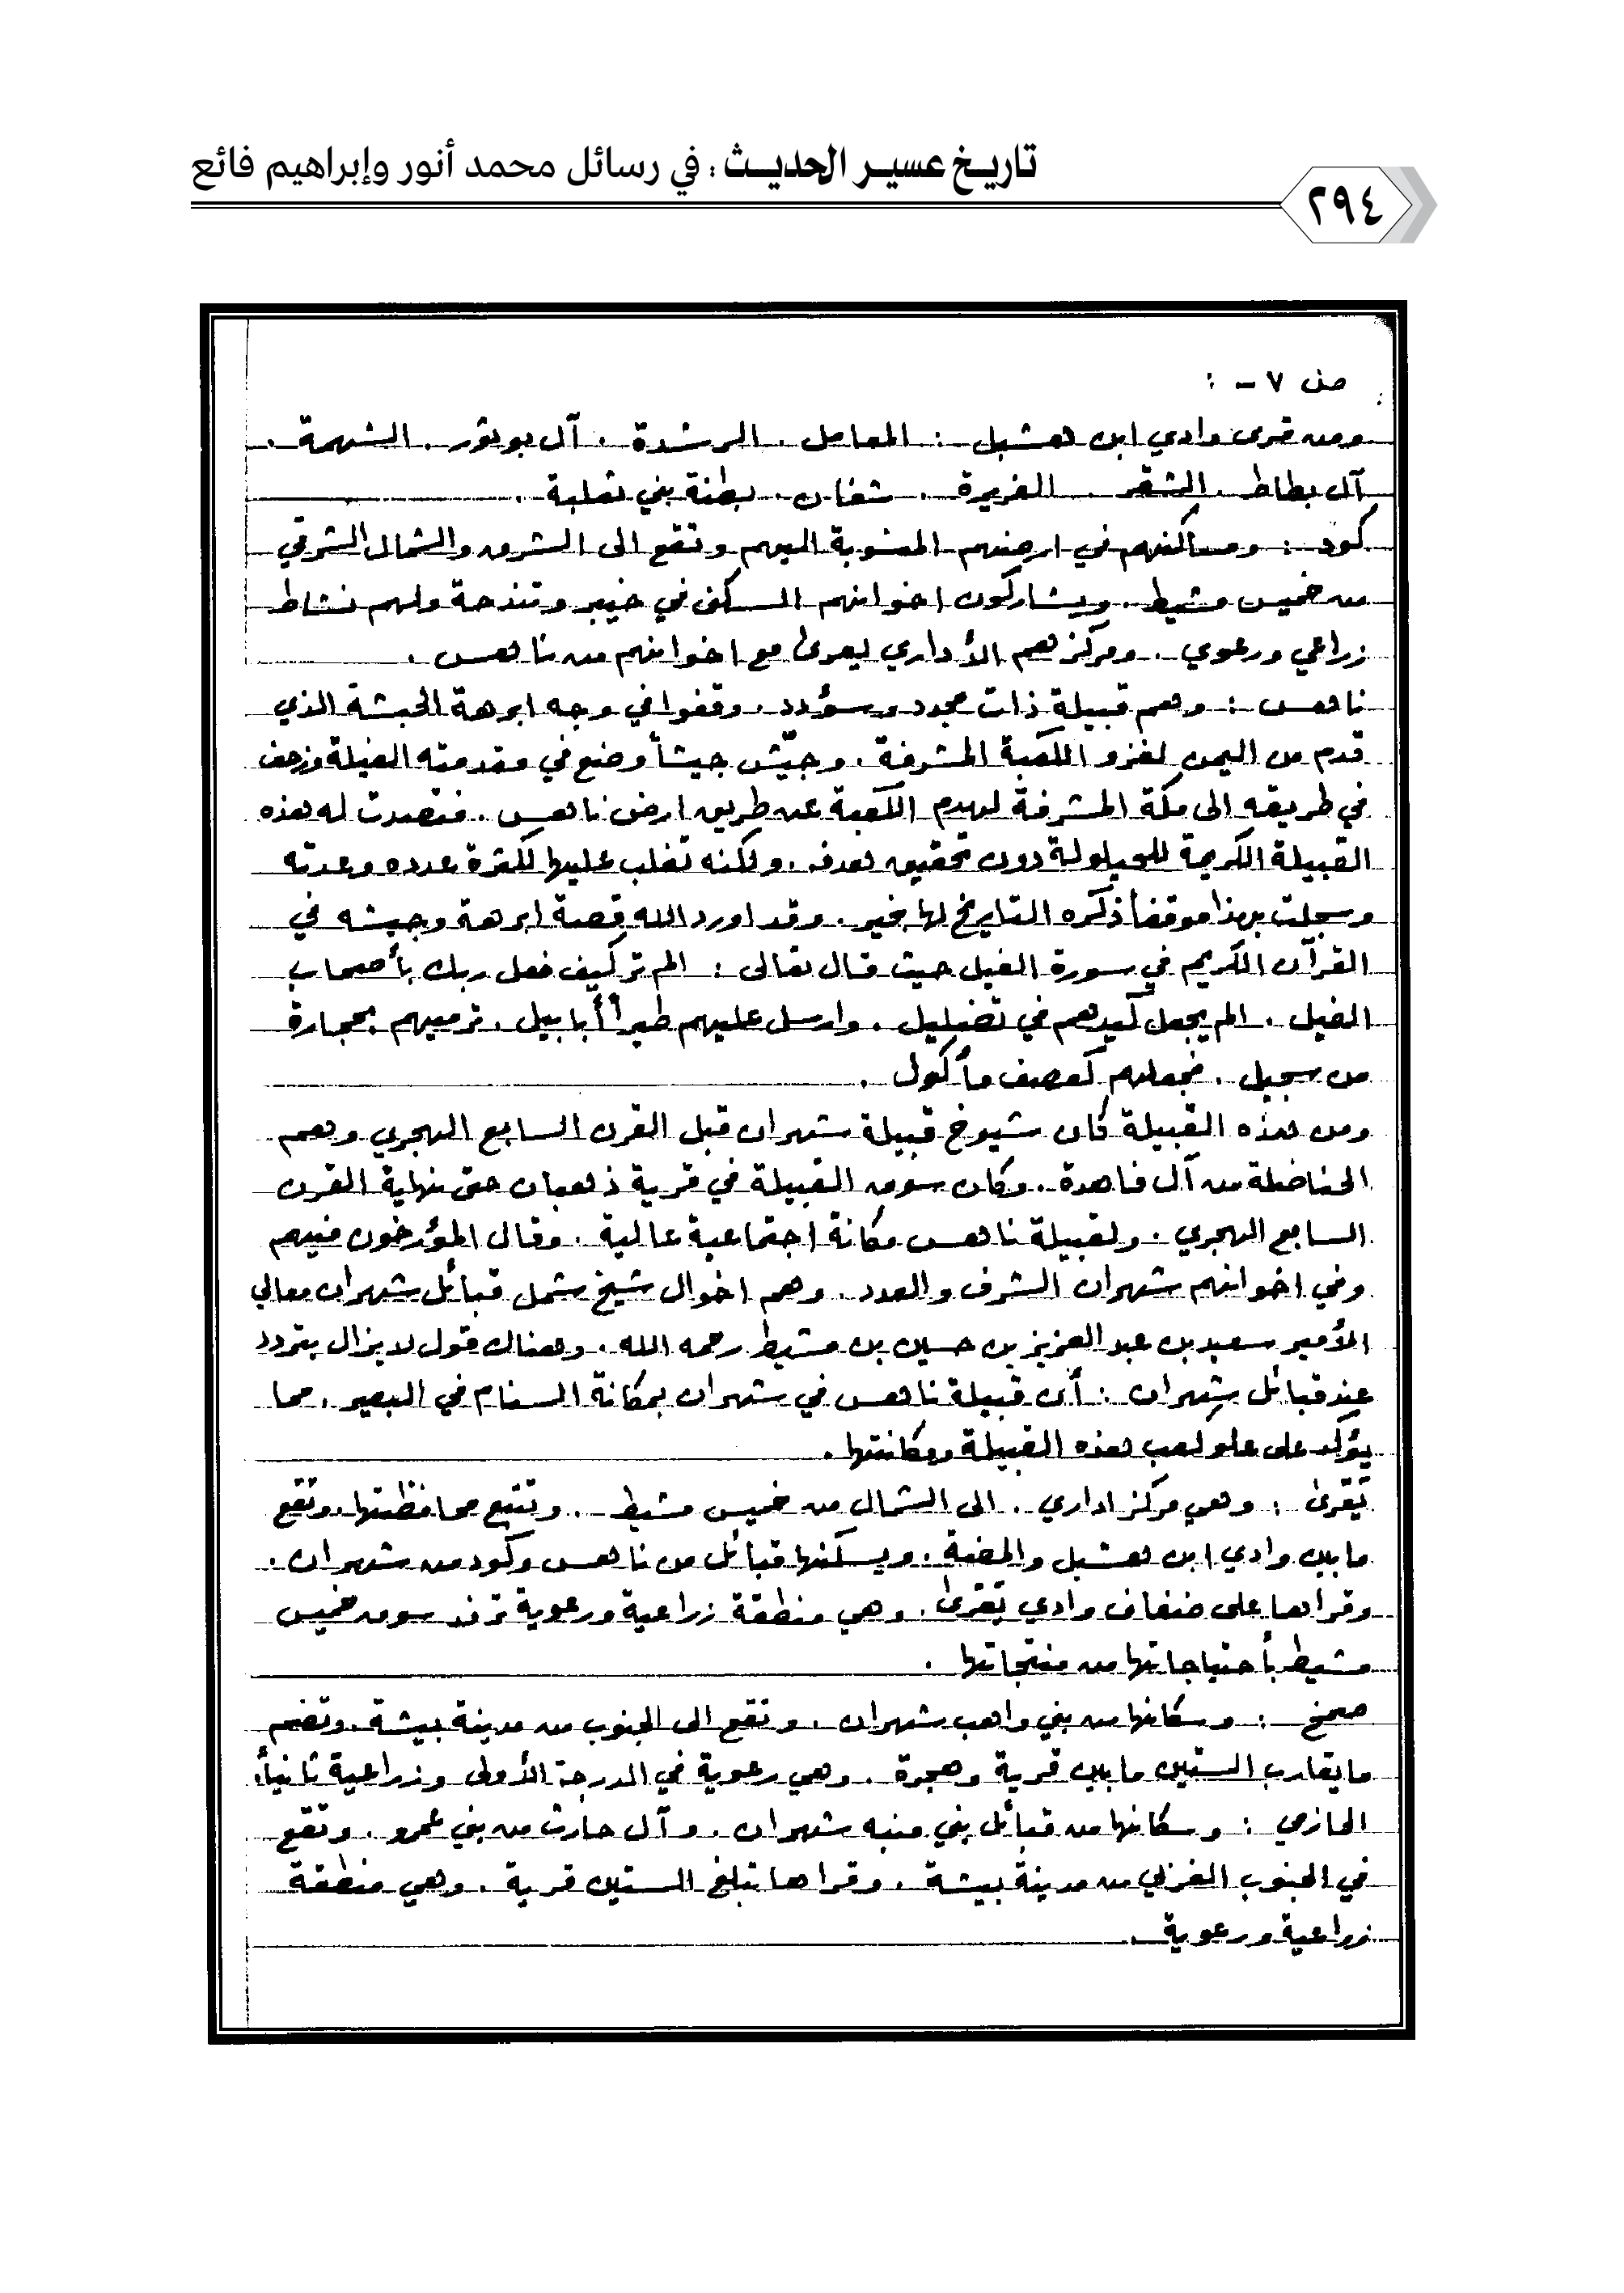 تاريخ عسير الحديث : في رسائل محمد أنور وإبراهيم فائع
٢٩٤
ص ٧ - :
ومن قرى وادي ابن هشبل : المعامل . الرشدة . آل بوثور . الشهمة .
آل بطاط . الشقر . الغريرة . شغان . بطنة بني ثعلبة .
كود : ومساكنهم في ارضهم المنسوبة اليهم وتقع الى الشرق والشمال الشرقي
من خميس مشيط . ويشاركون اخوانهم السكن في خيبر وتندحة ولهم نشاط
زراعي ورعوي . ومركزهم الأداري يعرى مع اخوانهم من ناهس .
ناهس : وهم قبيلة ذات مجد وسؤدد . وقفوا في وجه ابرهة الحبشة الذي
قدم من اليمن لغزو الكعبة المشرفة . وجيّش جيشاً وضع في مقدمته الفيلة وزحف
في طريقه الى مكة المشرفة لهدم الكعبة عن طريق ارض ناهس . فتصدت له هذه
القبيلة الكريمة للحيلولة دون تحقيق هدفه . ولكنه تغلب عليها لكثرة عدده وعدته
وسجلت بهذا موقفاً ذكره التاريخ لها بخير . وقد اورد الله قصة ابرهة وجيشه في
القرآن الكريم في سورة الفيل حيث قال تعالى : الم تر كيف فعل ربك بأصحاب
الفيل . الم يجعل كيدهم في تضليل . وارسل عليهم طيراً أبابيل . ترميهم بحجارة
من سجيل . فجعلهم كعصف مأكول .
ومن هذه القبيلة كان شيوخ قبيلة شهران قبل القرن السابع الهجري وهم
الحناضلة من آل فاهدة . وكان سوق القبيلة في قرية ذهبان حتى نهاية القرن
السابع الهجري . ولقبيلة ناهس مكانة اجتماعية عالية . وقال المؤرخون فيهم
وفي اخوانهم شهران الشرف والعدد . وهم اخوال شيخ شمل قبائل شهران معالي
الأمير سعيد بن عبد العزيز بن حسين بن مشيط رحمه الله . وهناك قول لا يزال يتردد
عند قبائل شهران : أن قبيلة ناهس في شهران بمكانة السنام في البعير . مما
يؤكد على علو كعب هذه القبيلة ومكانتها .
يَعْرى : وهي مركز اداري . الى الشمال من خميس مشيط . وتتبع محافظتها . وتقع
ما بين وادي ابن هشبل والمضة . ويسكنها قبائل من ناهس وكود من شهران .
وقراها على ضفاف وادي يعرى . وهي منطقة زراعية ورعوية ترفد سوق خميس
مشيط بأحتياجاتها من منتجاتها .
صمخ : وسكانها من بني واهب شهران . وتقع الى الجنوب من مدينة بيشة . وتضم
ما يقارب الستين ما بين قرية وهجرة . وهي رعوية في الدرجة الأولى وزراعية ثانياً .
الحازمي : وسكانها من قبائل بني منبه شهران . وآل حارث من بني عمرو . وتقع
في الجنوب الغربي من مدينة بيشة . وقراها تبلغ الستين قرية . وهي منطقة
زراعية ورعوية .